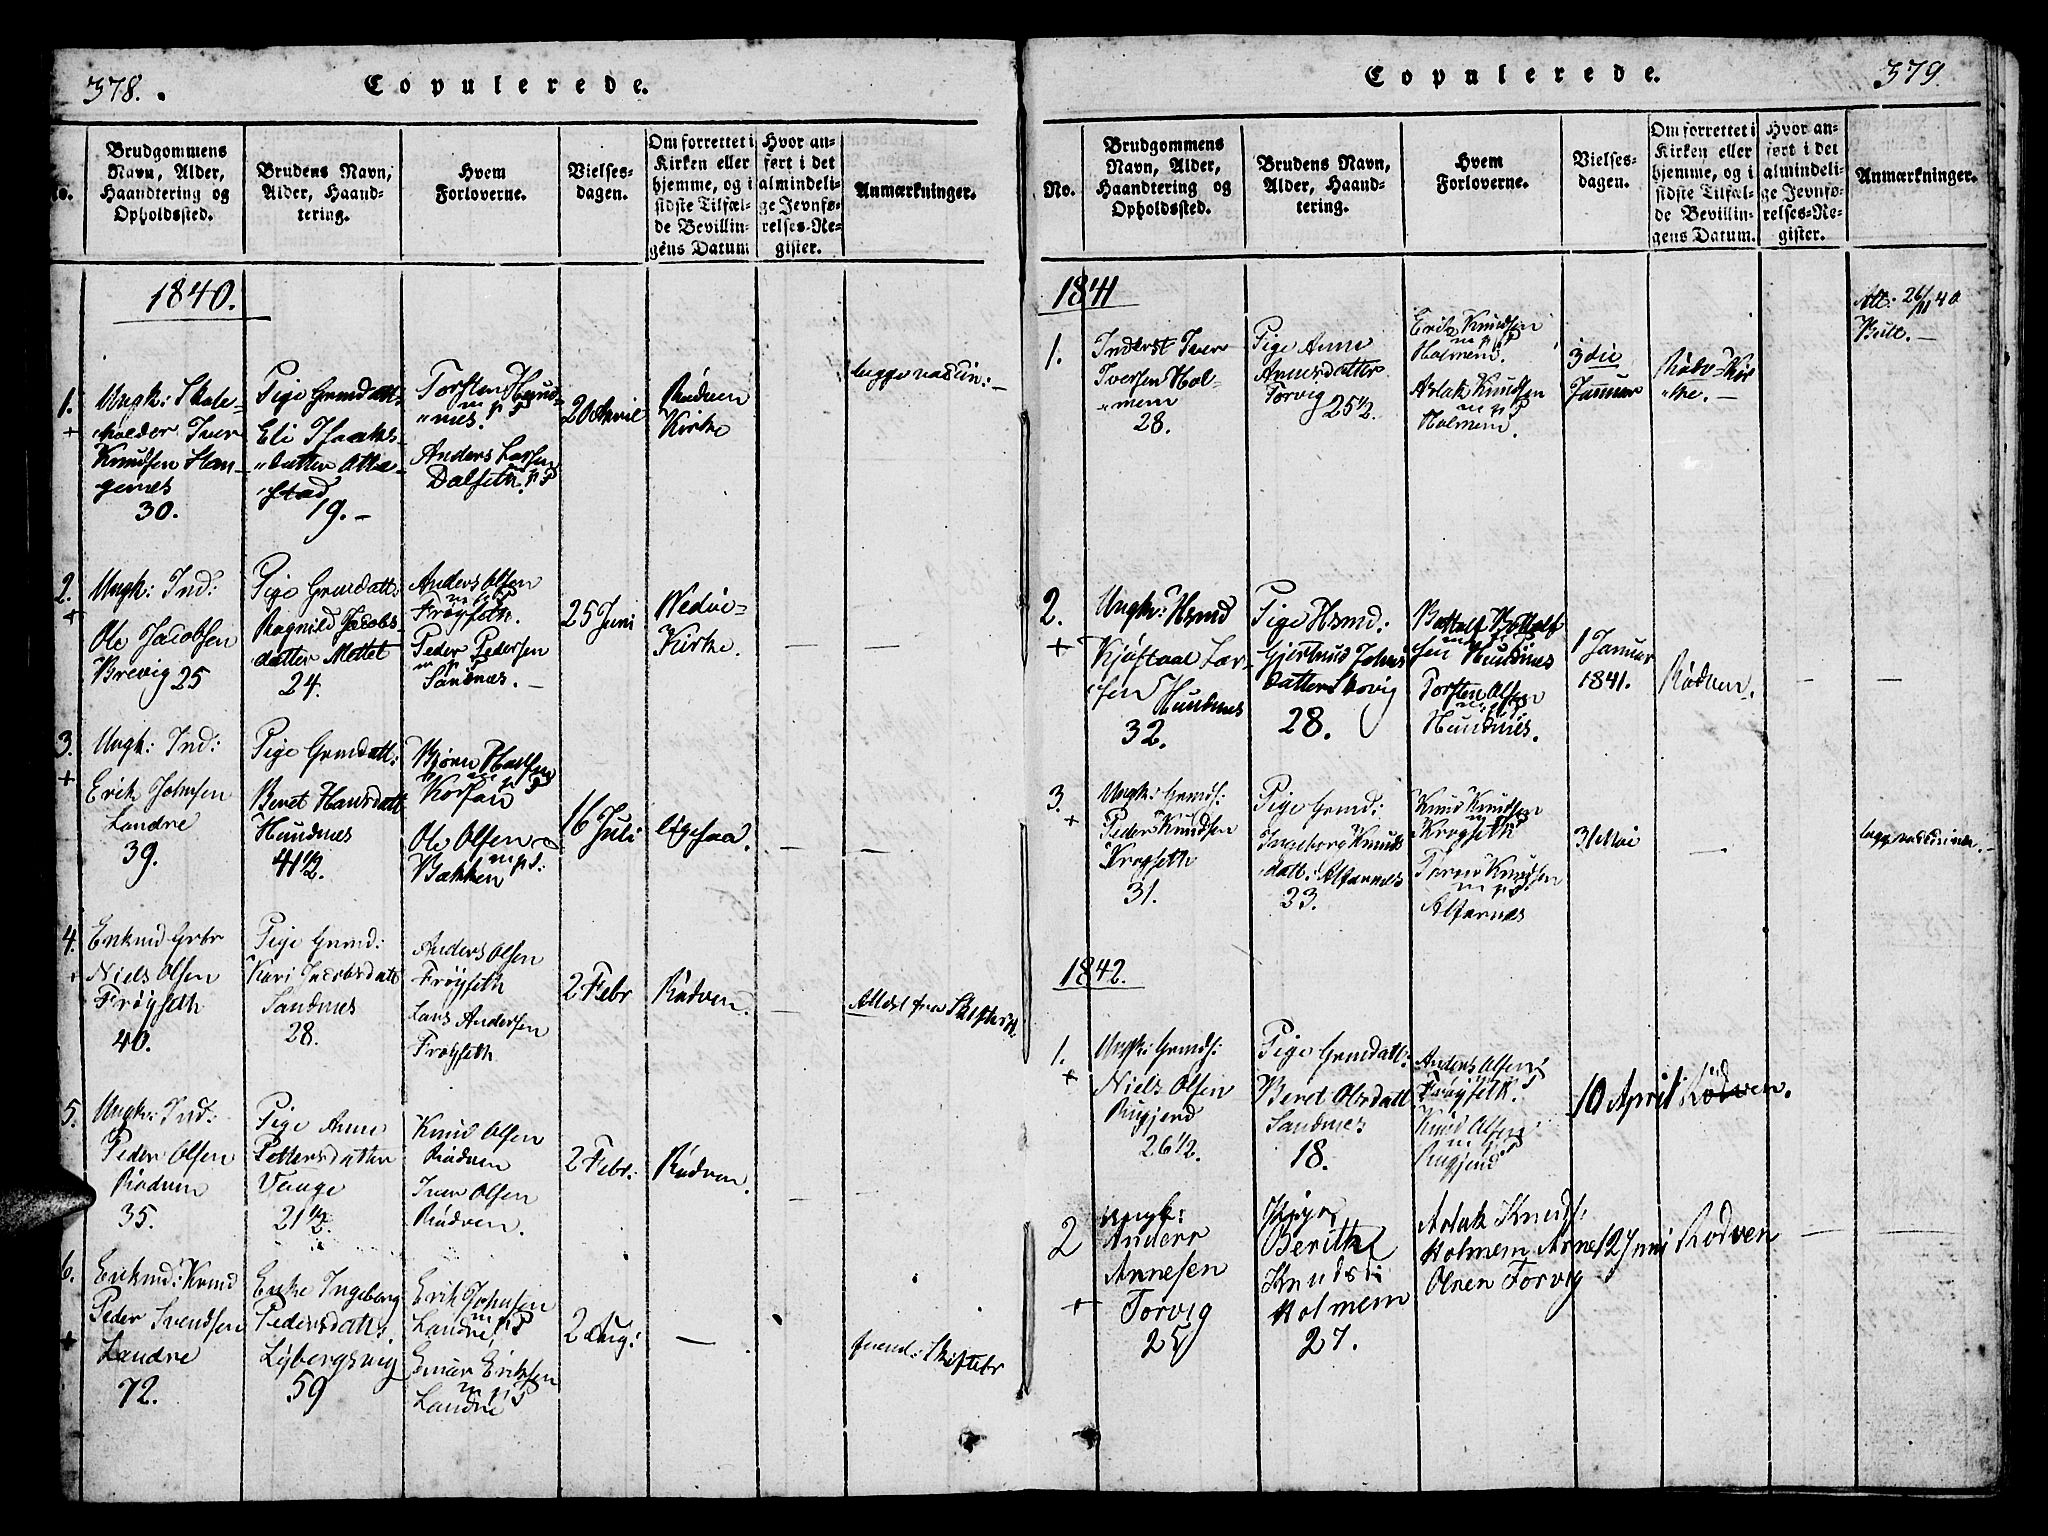 378.
Copulerede.
No.
Brudgommens
Navn, Alder,
Haandtering og
Opholdssted.
Brudens Navn,
Alder, Haand-
tering.
Hvem
Forloverne.
Vielses-
dagen.
Om forrettet i
Kirken eller
hjemme, og i
sidste Tilfæl-
de Bevillin-
gens Datum
Hvor an-
ført i det
almindeli-
ge Jevnfø-
relses-Re-
gister.
Anmærkninger.
1840.
1.
+
Ungk: Skole-
holder Iver
Knudsen Han-
genes
30.
Pige Grmdatt:
Eli Isaks-
datter
19. –
Torsten Hund-
nes.
Anders Larsen
Dalseth.
20 April
Rødven
Kirke
2.
+
Ungk: Ind:
Ole Jacobsen
Brevig 25
Pige Grmdatt:
Ragnild Jacobs-
datter Mettet
24.
Anders Olsen
Frøyseth.
Peder Pedersen
Sandnes. –
25 Juni
Wedøe-
Kirke.
3.
+
Ungk: Ind:
Erik Johnsen
Landre
39.
Pige Grmdatt:
Beret Hansdatt
Hundnes
41½.
Bjørn
Korsan
Ole Olsen
Bakken
16 Juli
ligesaa.
4.
+
Enkmd Grbr
Niels Olsen
Frøyseth
40.
Pige Grmd:
Kari Jacobsdatt
Sandnes
28.
Anders Olsen
Frøyseth
Lars Andersen
Frøyseth
2 Febr
Rødven.
Attest fra Skifterit.
5.
Ungk: Ind:
Peder Olsen
Rødven
35.
Pige Anne
Pettersdatter
Venge
21½.
Knud Olsen
Rødven
Iver Olsen
Rødven.
2 Febr:
Rødven.
6.
+
Enkmd: Krmd
Peder Svendsen
Landre
72.
Enke Ingeborg
Pedersdatt:
Lybergsvig
59
Erik Johnsen
Landre
Einar Eriksen
Landre
2 Aug:
Skiftebr
379.
Copulerede.
No.
Brudgommens
Navn, Alder,
Haandtering og
Opholdssted.
Brudens Navn,
Alder, Haand-
tering.
Hvem
Forloverne.
Vielses-
dagen.
Om forrettet i
Kirken eller
hjemme, og i
sidste Tilfæl-
de Bevillin-
gens Datum.
Hvor an-
ført i det
almindeli-
ge Jevnfø-
relses-Re-
gister.
Anmærkninger.
1841
1.
Inderst Iver
Iversen Hol-
mem
28.
Pige Anne
Arnesdatter
Torvig
25½.
Erik Knudsen
Holmem.
Aslak Knudsen
Holmem.
3die
Januar
Rødv: Kir
ke. –
Att: 26/11 40
2.
+
Ungk: Hsmd
Kjøstaal Lar-
sen Hundnes
32.
Pige Hsmd:
Gjertrud Johns
datter
28.
Bottolf Bottolf
sen Hundnes
Torsten Olsen
Hundnes.
1 Januar
1841.
Rødven.
3.
+
Ungk: Grmds:
Peder Knudsen
Krogseth
31.
Pige Grmd:
Ingeborg Knuds
datt: Alfarnes
33.
Knud Knudsen
Krogseth
Knudsen
Alfarnes
31 Mai
1842.
1.
+
Ungk: Grmds:
Niels Olsen
Rugjend
26½.
Pige Grmdatt:
Beret Olsdatt
Sandnes
18.
Anders Olsen
Frøyseth.
Knud Olsen
Rugjend
10 April
Rødven.
2
+
Ungk:
Anders
Arnesen
Torvig
25
Pige
Berithe
Knudsd:
Holmem
27.
Aslak Knuds:
Holmem Arne
Olsen Torvig
12 Juni
Rødven